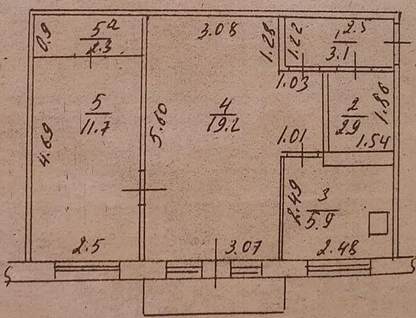 0.9
5а
2.3
3.08
1.28
1.22
1
2.5
3.1
1.03
5
11.7
4.69
5.60
4
19.2
2
2.9
1.86
1.01
1.54
2.49
3
5.9
2.5
3.07
2.48